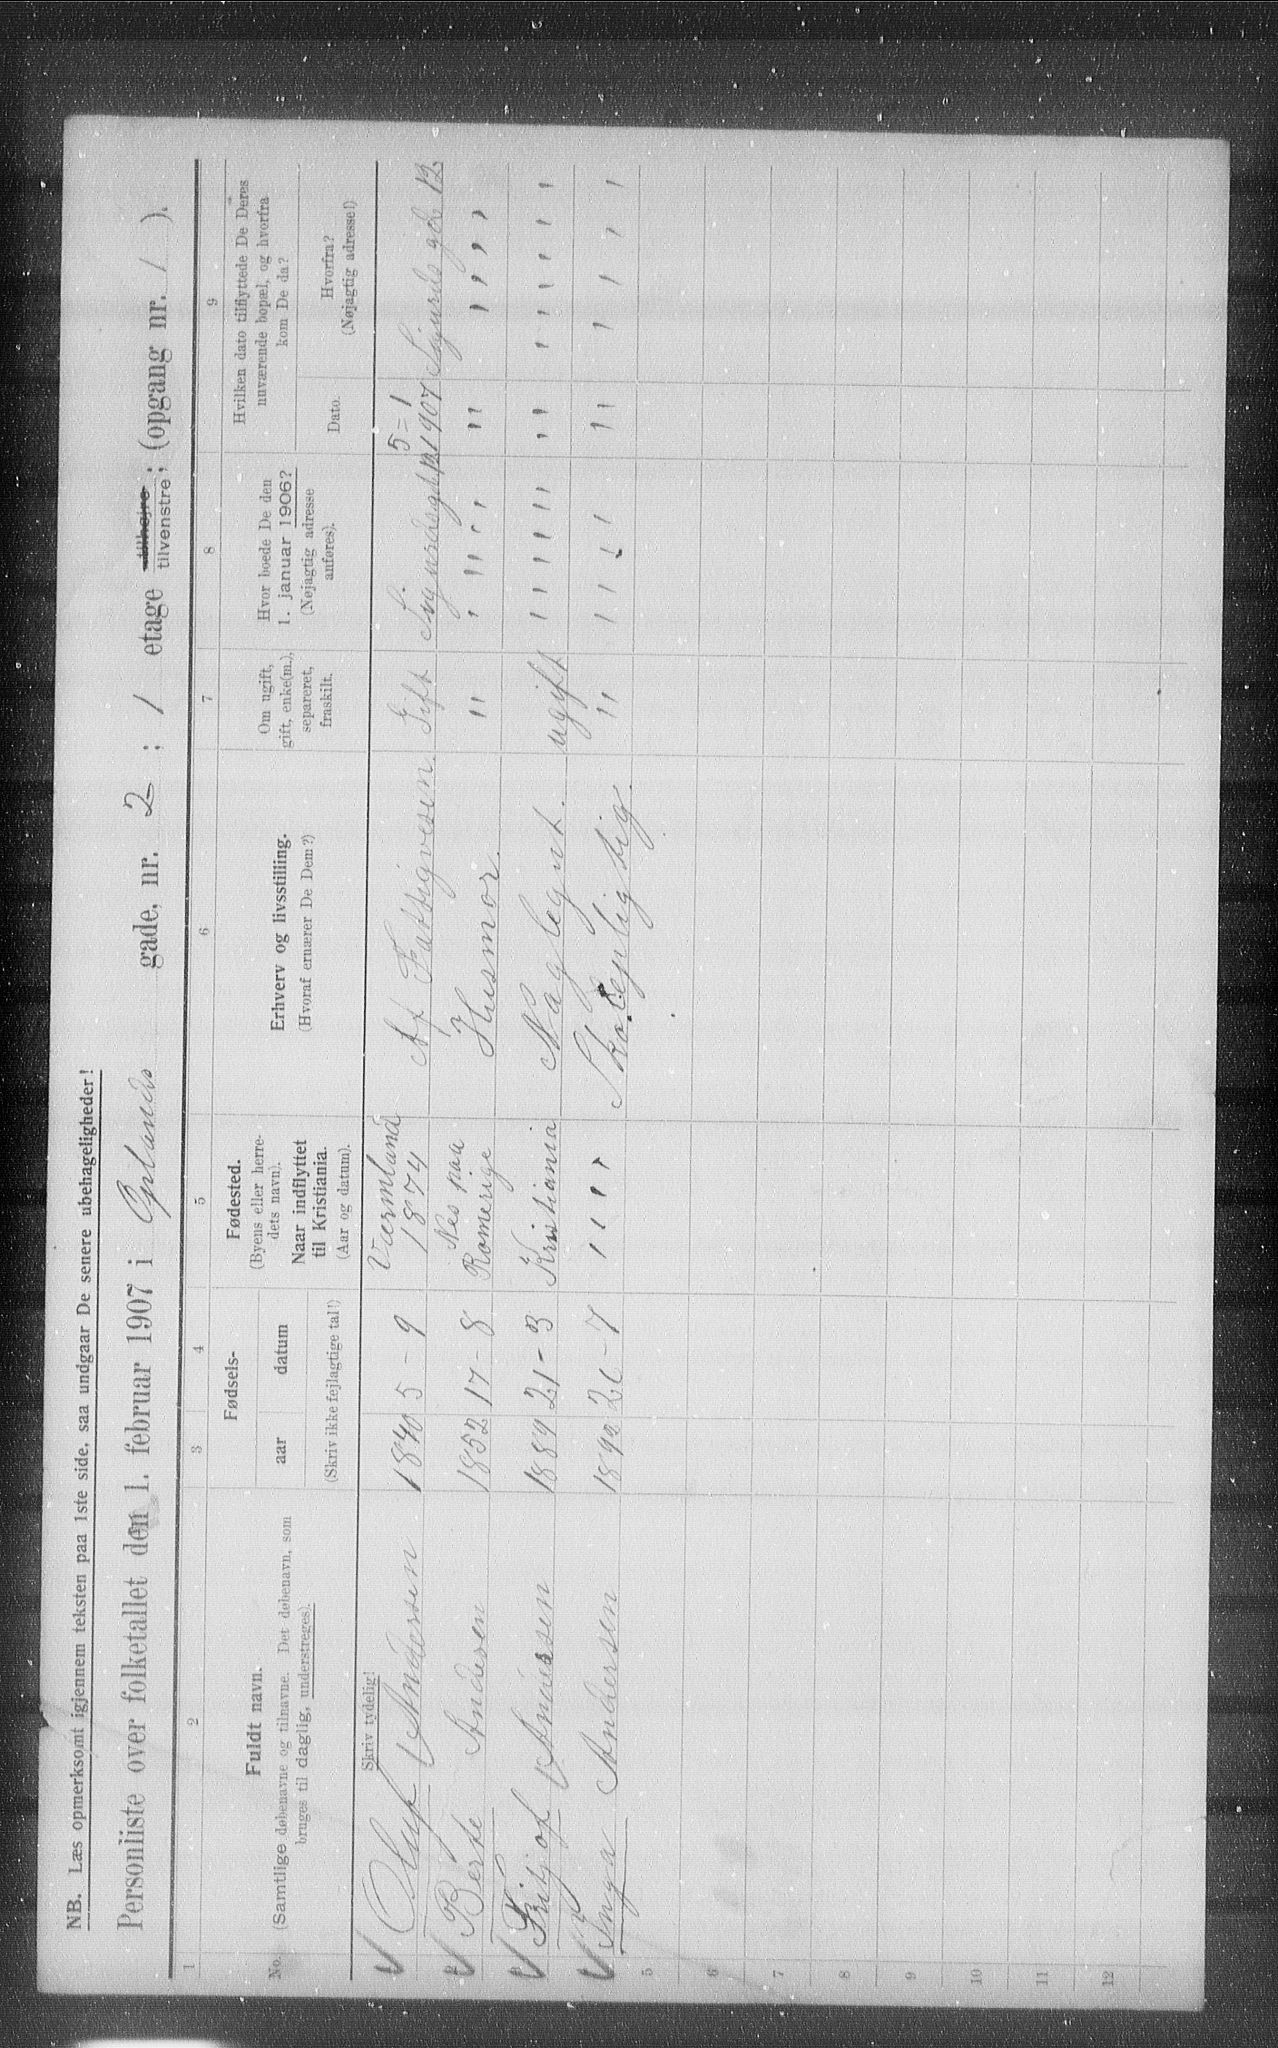 NB. Læs opmerksomt igjennem teksten paa 1ste side, saa undgaar De senere ubehageligheder!
Personliste over folketallet den 1. februar 1907 i Oplands gade, nr. 2 ; 1 etage tilhøjre tilvenstre ; (opgang nr. 1 ).
1 2 3 4 5 6 7 8 9
No. Fuldt navn. (Samtlige døbenavne og tilnavne. Det døbenavn, som bruges til daglig, understreges). Fødsels- aar datum (Skriv ikke fejlagtige tal!) Fødested. (Byens eller herredets navn). Naar indflyttet til Kristiania. (Aar og datum). Erhverv og livsstilling. (Hvoraf ernærer De Dem?) Om ugift, gift, enke(m.), separeret, fraskilt. Hvor boede De den 1. januar 1906? (Nøjagtig adresse anføres). Hvilken dato tilflyttede De Deres nuværende bopæl, og hvorfra kom De da? Dato. Hvorfra? (Nøjagtig adresse!)
Skriv tydelig!
Oluf Andersen 1840 5-9 Värmland 1874 Af Fattigvesen. Gift Sigurdsgd 12 5=1 1907 Sigurds gde 12
Berte Andersen 1852 17-8 Nes paa Romerige Husmor. " " " " " " " " " "
Fritjof Andersen 1889 21-3 Kristiania Naglegut. ugift " " " " " " " " " "
Inga Andersen 1892 26-7 " " " Skolepligtig. " " " " " " " " "
5
6
7
8
9
10
11
12